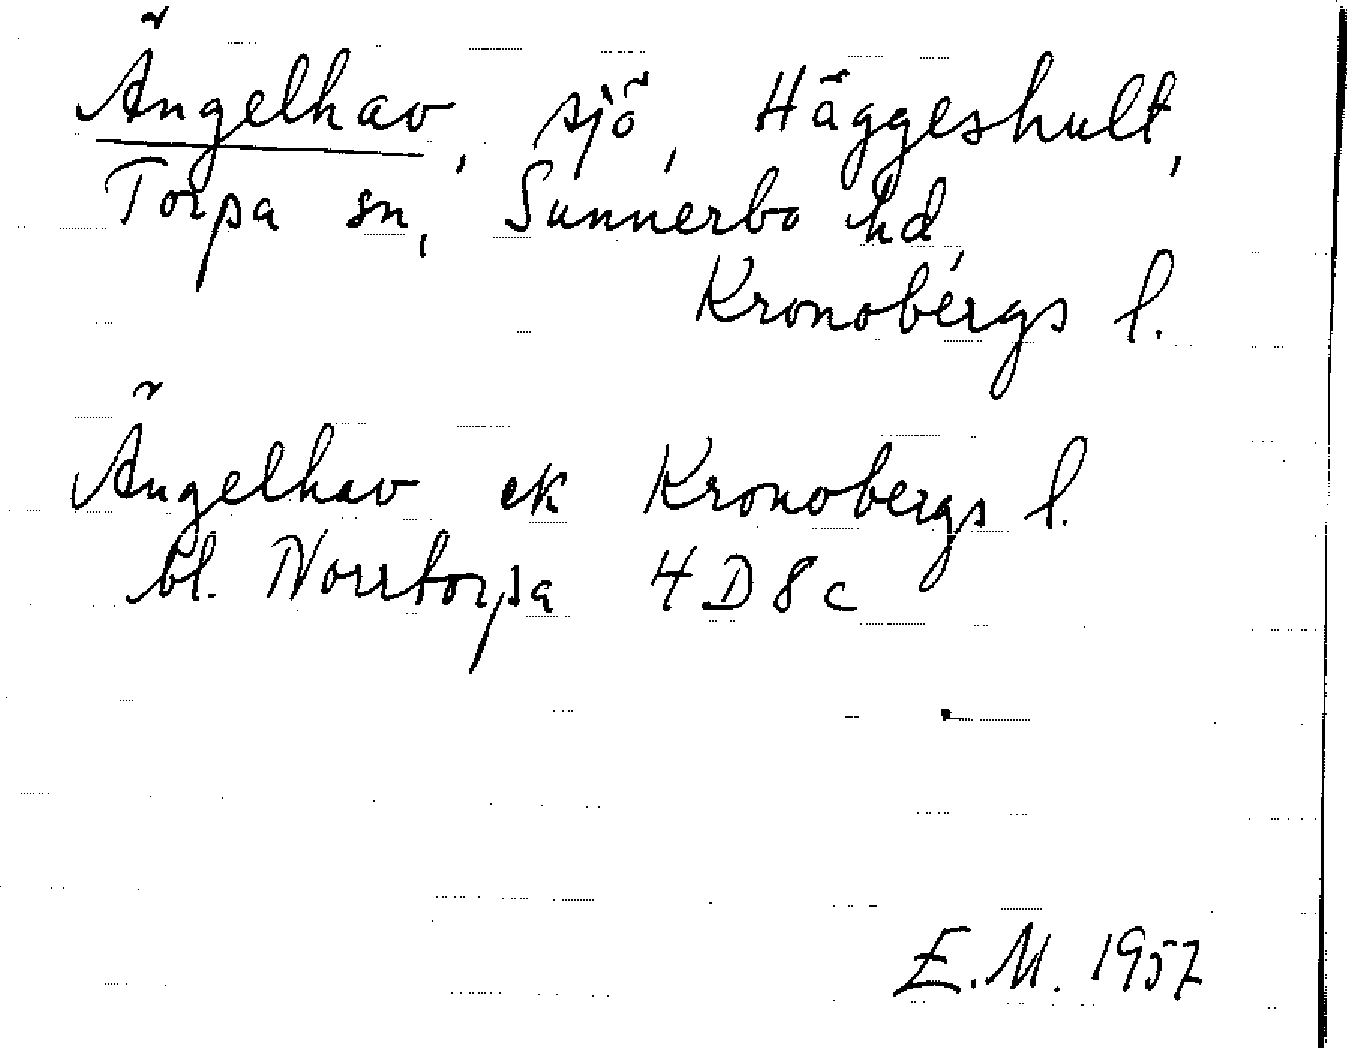 Ängelhav, sjö, Häggeshult,
Torpa sn, Sunnerbo hd,
Kronobergs l.
Ängelhav ek Kronobergs l.
bl. Norrtorpa 4D8c
E.M. 1957